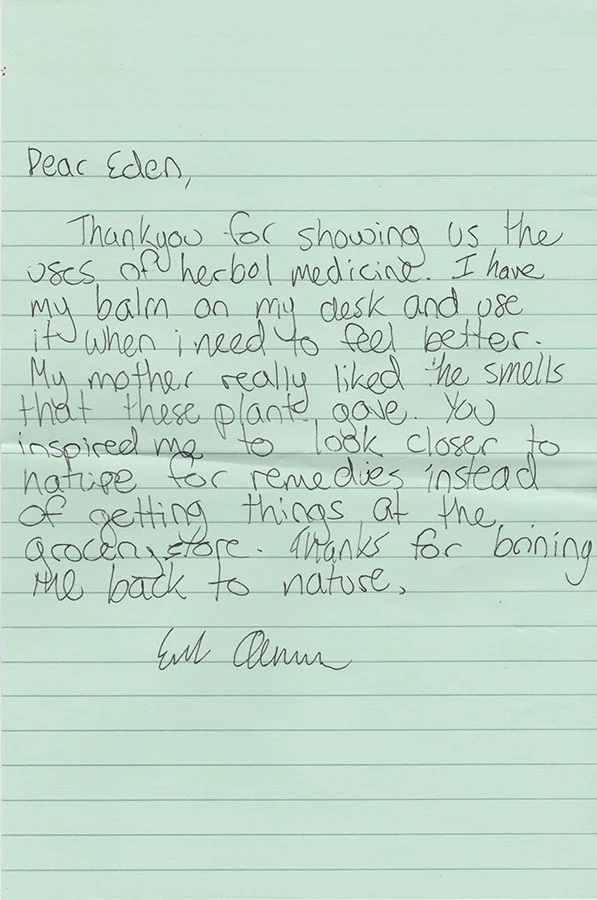 Dear Eden,
Thankyou for showing us the
uses of herbol medicine. I have
my balm on my desk and use
it when i need to feel better.
My mother really liked the smells
that these plants gave. You
inspired me to look closer to
nature for remedies instead
of getting things at the
grocery store. Thanks for brining
me back to nature.